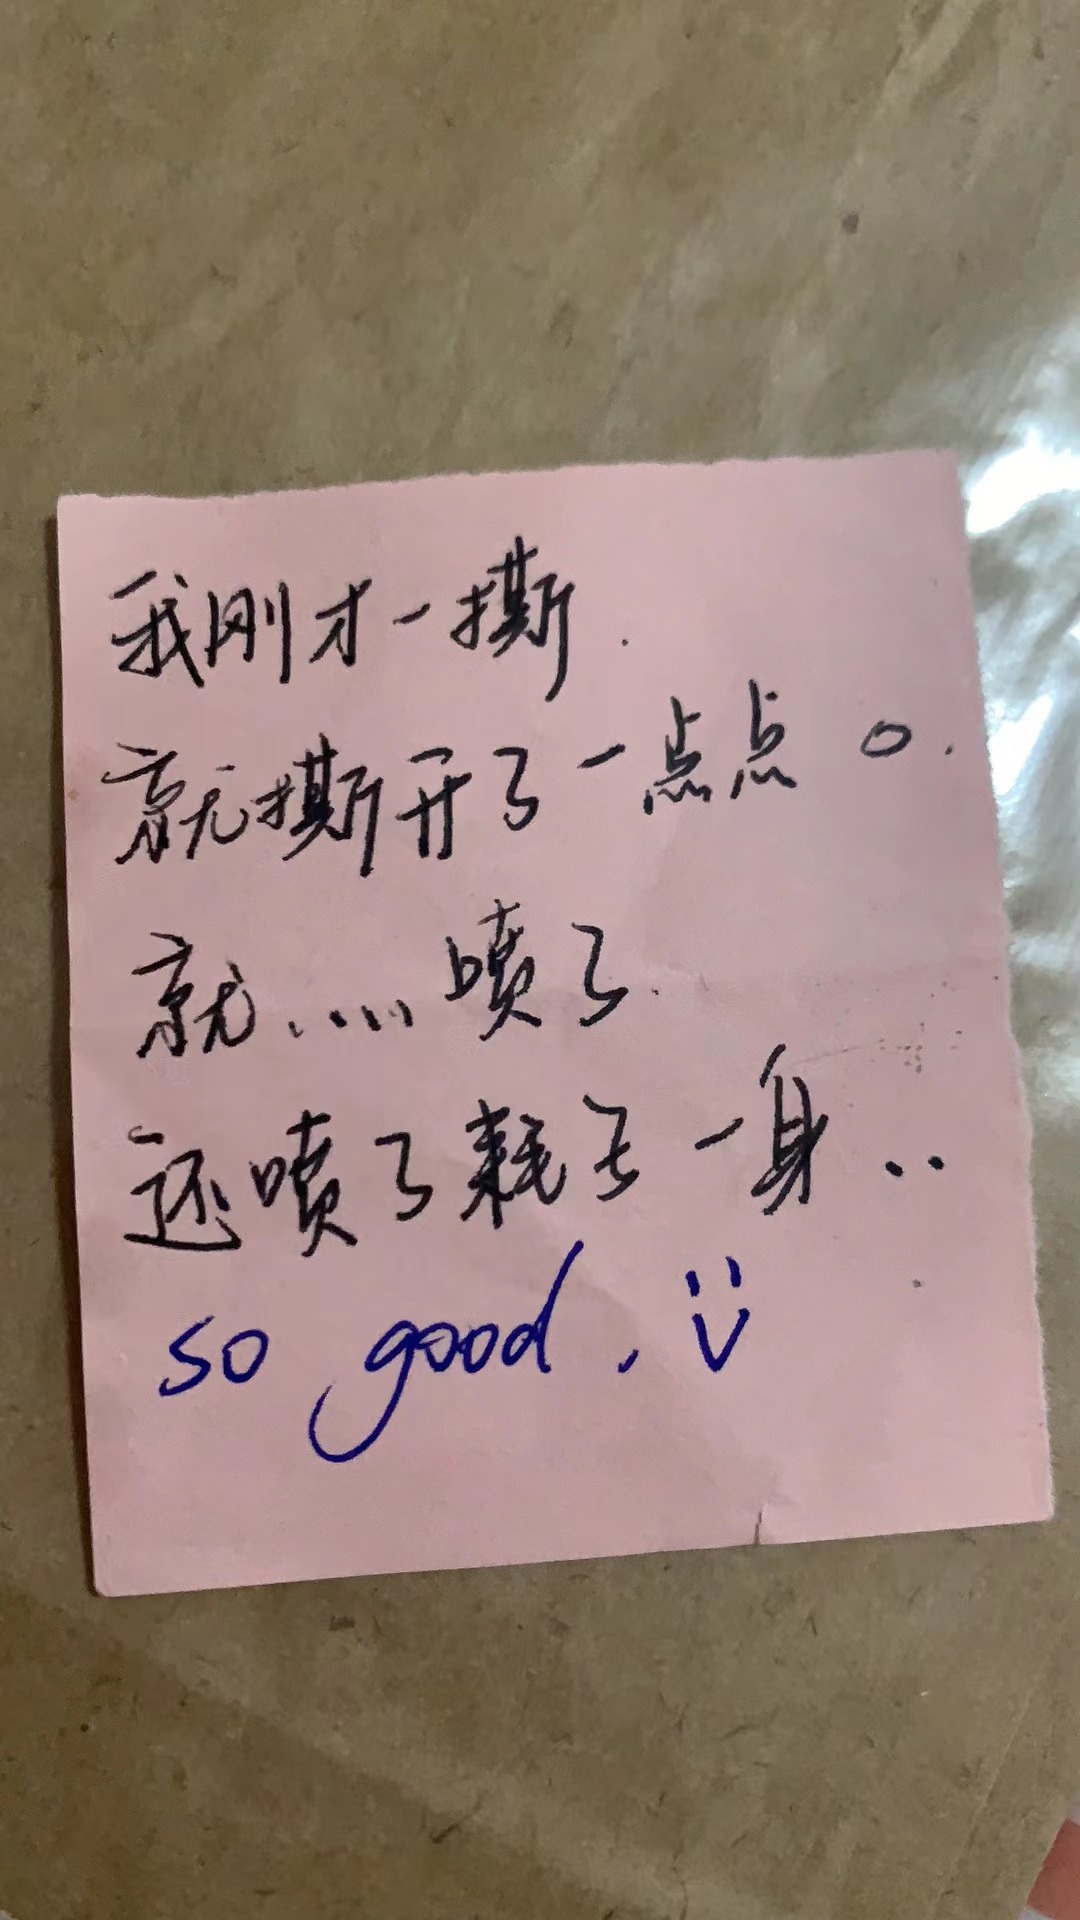 我刚才一撕.
就撕开了一点点 O.
就.....喷了.
还喷了耗子一身..
so good. :V